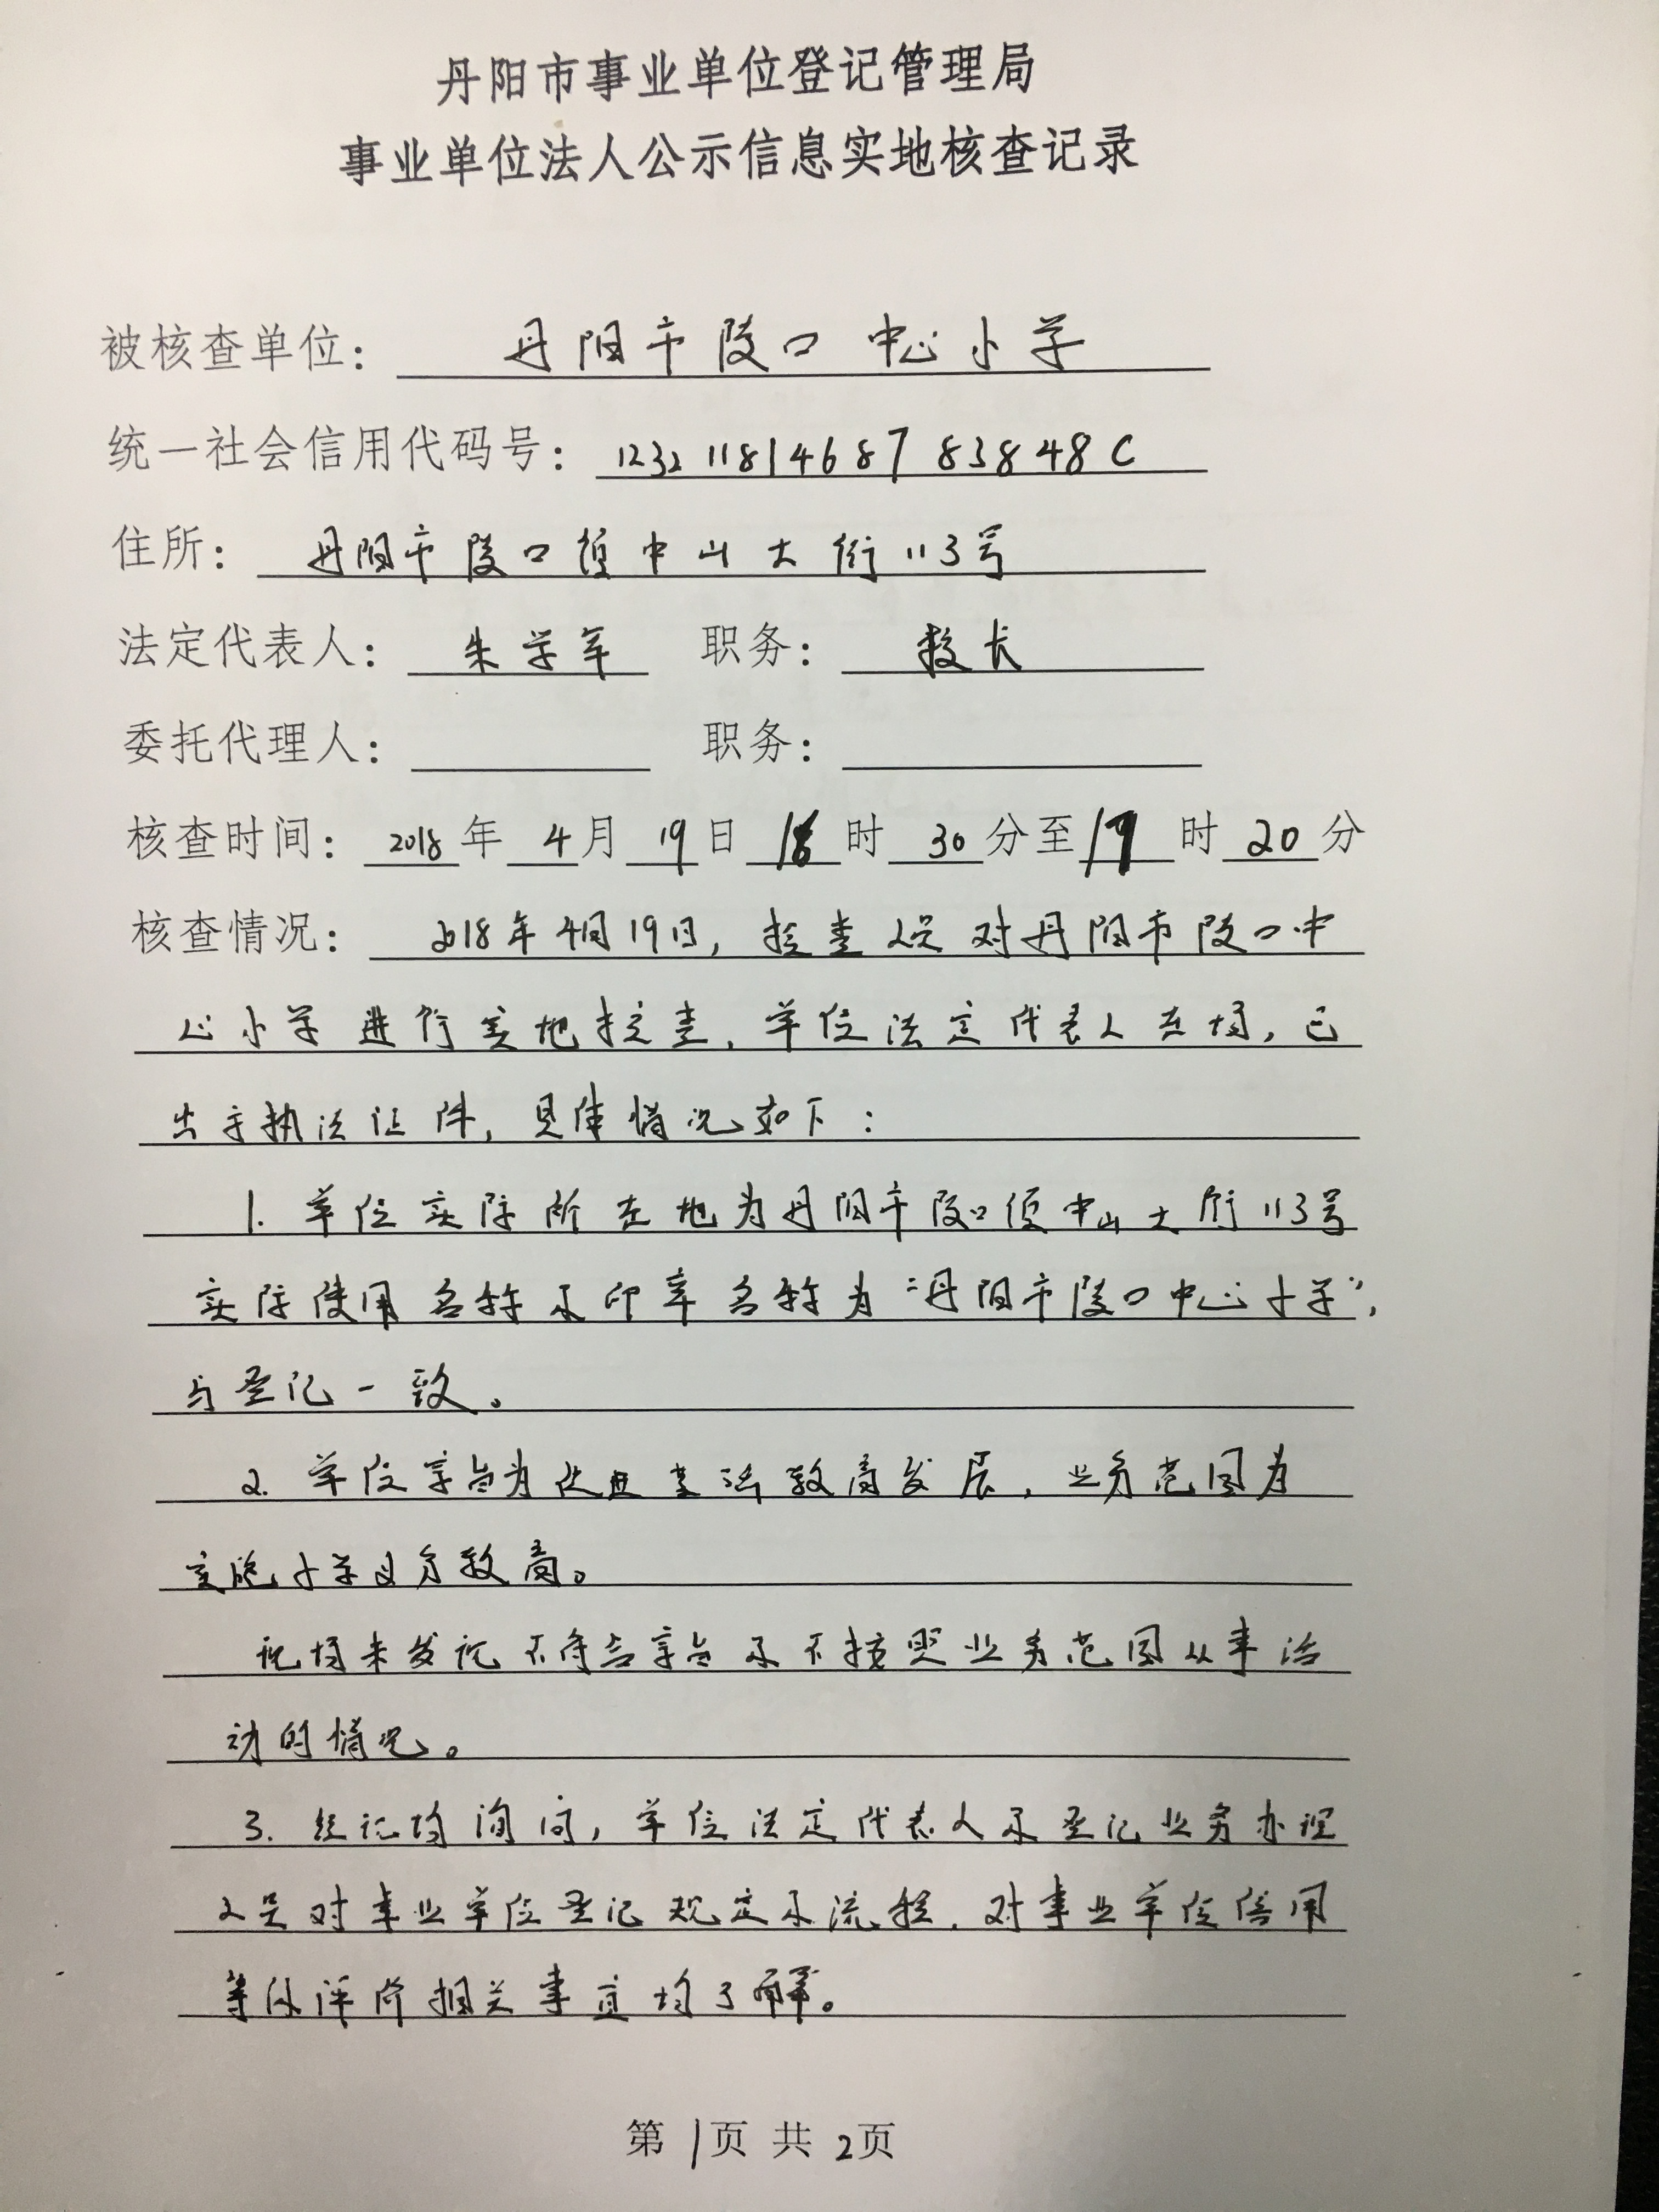 丹阳市事业单位登记管理局
事业单位法人公示信息实地核查记录
被核查单位： 丹阳市陵口中心小学
统一社会信用代码号： 12321181468783848C
住所： 丹阳市陵口镇中山大街113号
法定代表人： 朱学军 职务： 校长
委托代理人： 职务：
核查时间： 2018年4月19日 时30分至 时20分
核查情况： 2018年4月19日，检查人员对丹阳市陵口中
心小学进行实地检查，单位法定代表人在场，已
出示执法证件，具体情况如下：
1. 单位实际所在地为丹阳市陵口镇中山大街113号
实际使用名称和印章名称为“丹阳市陵口中心小学”，
与登记一致。
2. 单位宗旨为促进基础教育发展，业务范围为
实施小学义务教育。
现场未发现不符合宗旨和不按照业务范围从事活
动的情况。
3. 经现场询问，单位法定代表人和登记业务办理
人员对事业单位登记规定和流程，对事业单位信用
等级评价相关事宜均了解。
第1页 共2页